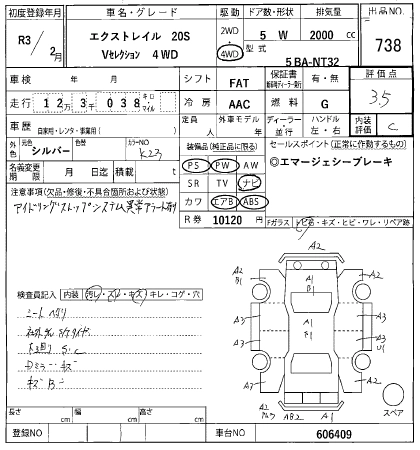 初度登録年月 車名・グレード 駆動 ドア数・形状 排気量 出品番号
R3/2月 エクストレイル 20S 2WD・4WD 5 W 2000 cc 738
Vセレクション 4WD 型式 5BA-NT32
車検 年 月 シフト FAT 保証書 有・無 評価点
走行 12万3千038 キロ・マイル 冷房 AAC 燃料 G 3.5
車歴 自家用・レンタ・事業用( ) 定員 人 外車モデル 年 ディーラー・並行 ハンドル 左・右 内装評価 C
外色 元色 シルバー 色 カラーNO K23 装備品(純正品に限る) セールスポイント(正常に作動するもの)
名義変更期限 月 日迄 積載 t PS PW AW ◎エマージェシーブレーキ
注意事項(欠品・修復・不具合箇所および状態) SR TV ナビ
アイドリングストップシステム異常アラート有 カワ エアB ABS
R券 10120 円 Fガラス トビ石・キズ・ヒビ・ワレ・リペア跡
検査員記入 内装 汚レ・スレ・キズ キレ・コゲ・穴
シートヘタリ
下回り S.C
キズ B
A2
A2
B1
A1
A1
B1
A2
A3
A3
A3
A3
U1
A2
A2
A1
スペア
長さ cm 幅 cm 高さ cm
登録NO 車台NO 606409